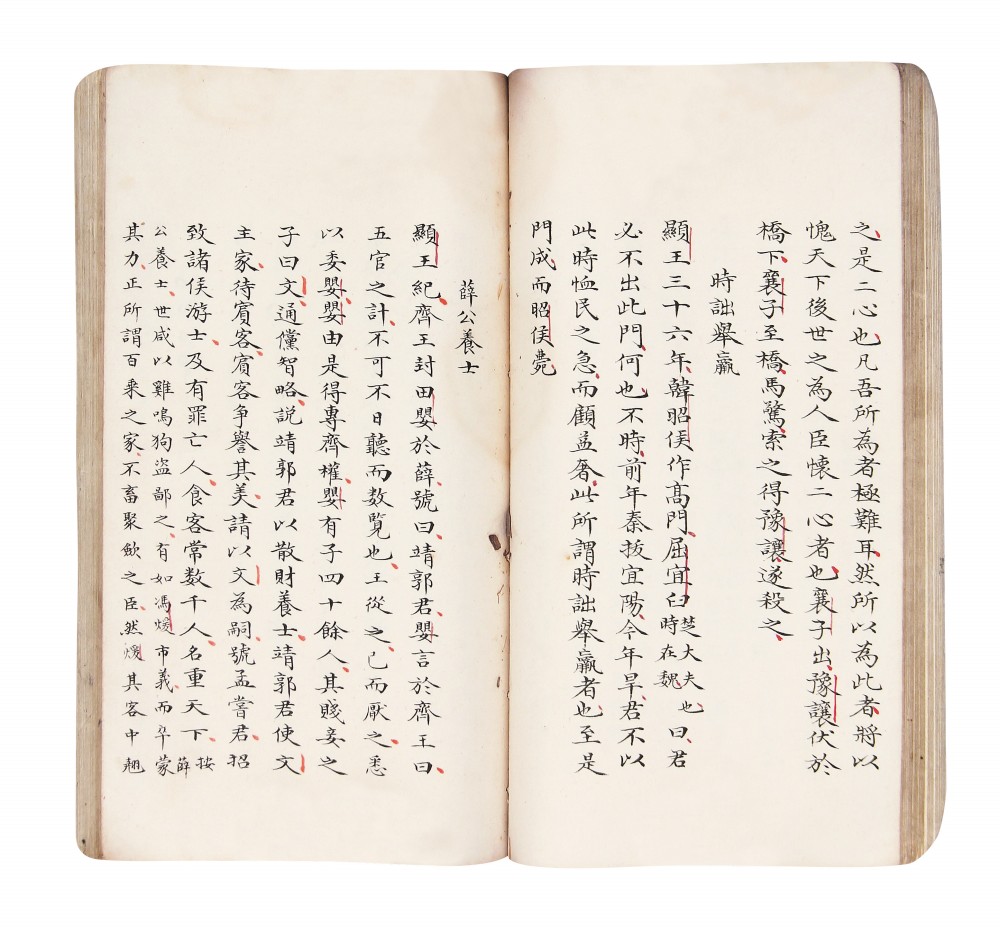 之是二心也凡吾所為者極難耳然所以為此者將以
愧天下後世之為人臣懷二心者也襄子出豫讓伏於
橋下襄子至橋馬驚索之得豫讓遂殺之
時詘舉贏
顯王三十六年韓昭侯作高門屈宜臼芝大夫也時在魏曰君
必不出此門何也不時前年秦拔宜陽今年旱君不以
此時恤民之急而顧益奢此所謂時詘舉贏者也至是
門成而昭侯薨
薛公養士
顯王紀齊王封田嬰於薛號曰靖郭君嬰言於齊王曰
五官之計不可不日聽而数覽也王從之已而厭之悉
以委嬰嬰由是得專齊權嬰有子四十餘人其賤妾之
子曰文通儻智略説靖郭君以散財養士靖郭君使文
主家待賓客賓客争譽其美請以文為嗣號孟嘗君招
致諸侯游士及有罪亡人食客常数千人名重天下按薛
公養士世咸以雞鳴狗盜鄙之有如馮煖市義而卒蒙
其力正所謂百乘之家不畜聚斂之臣然煖其客中翹